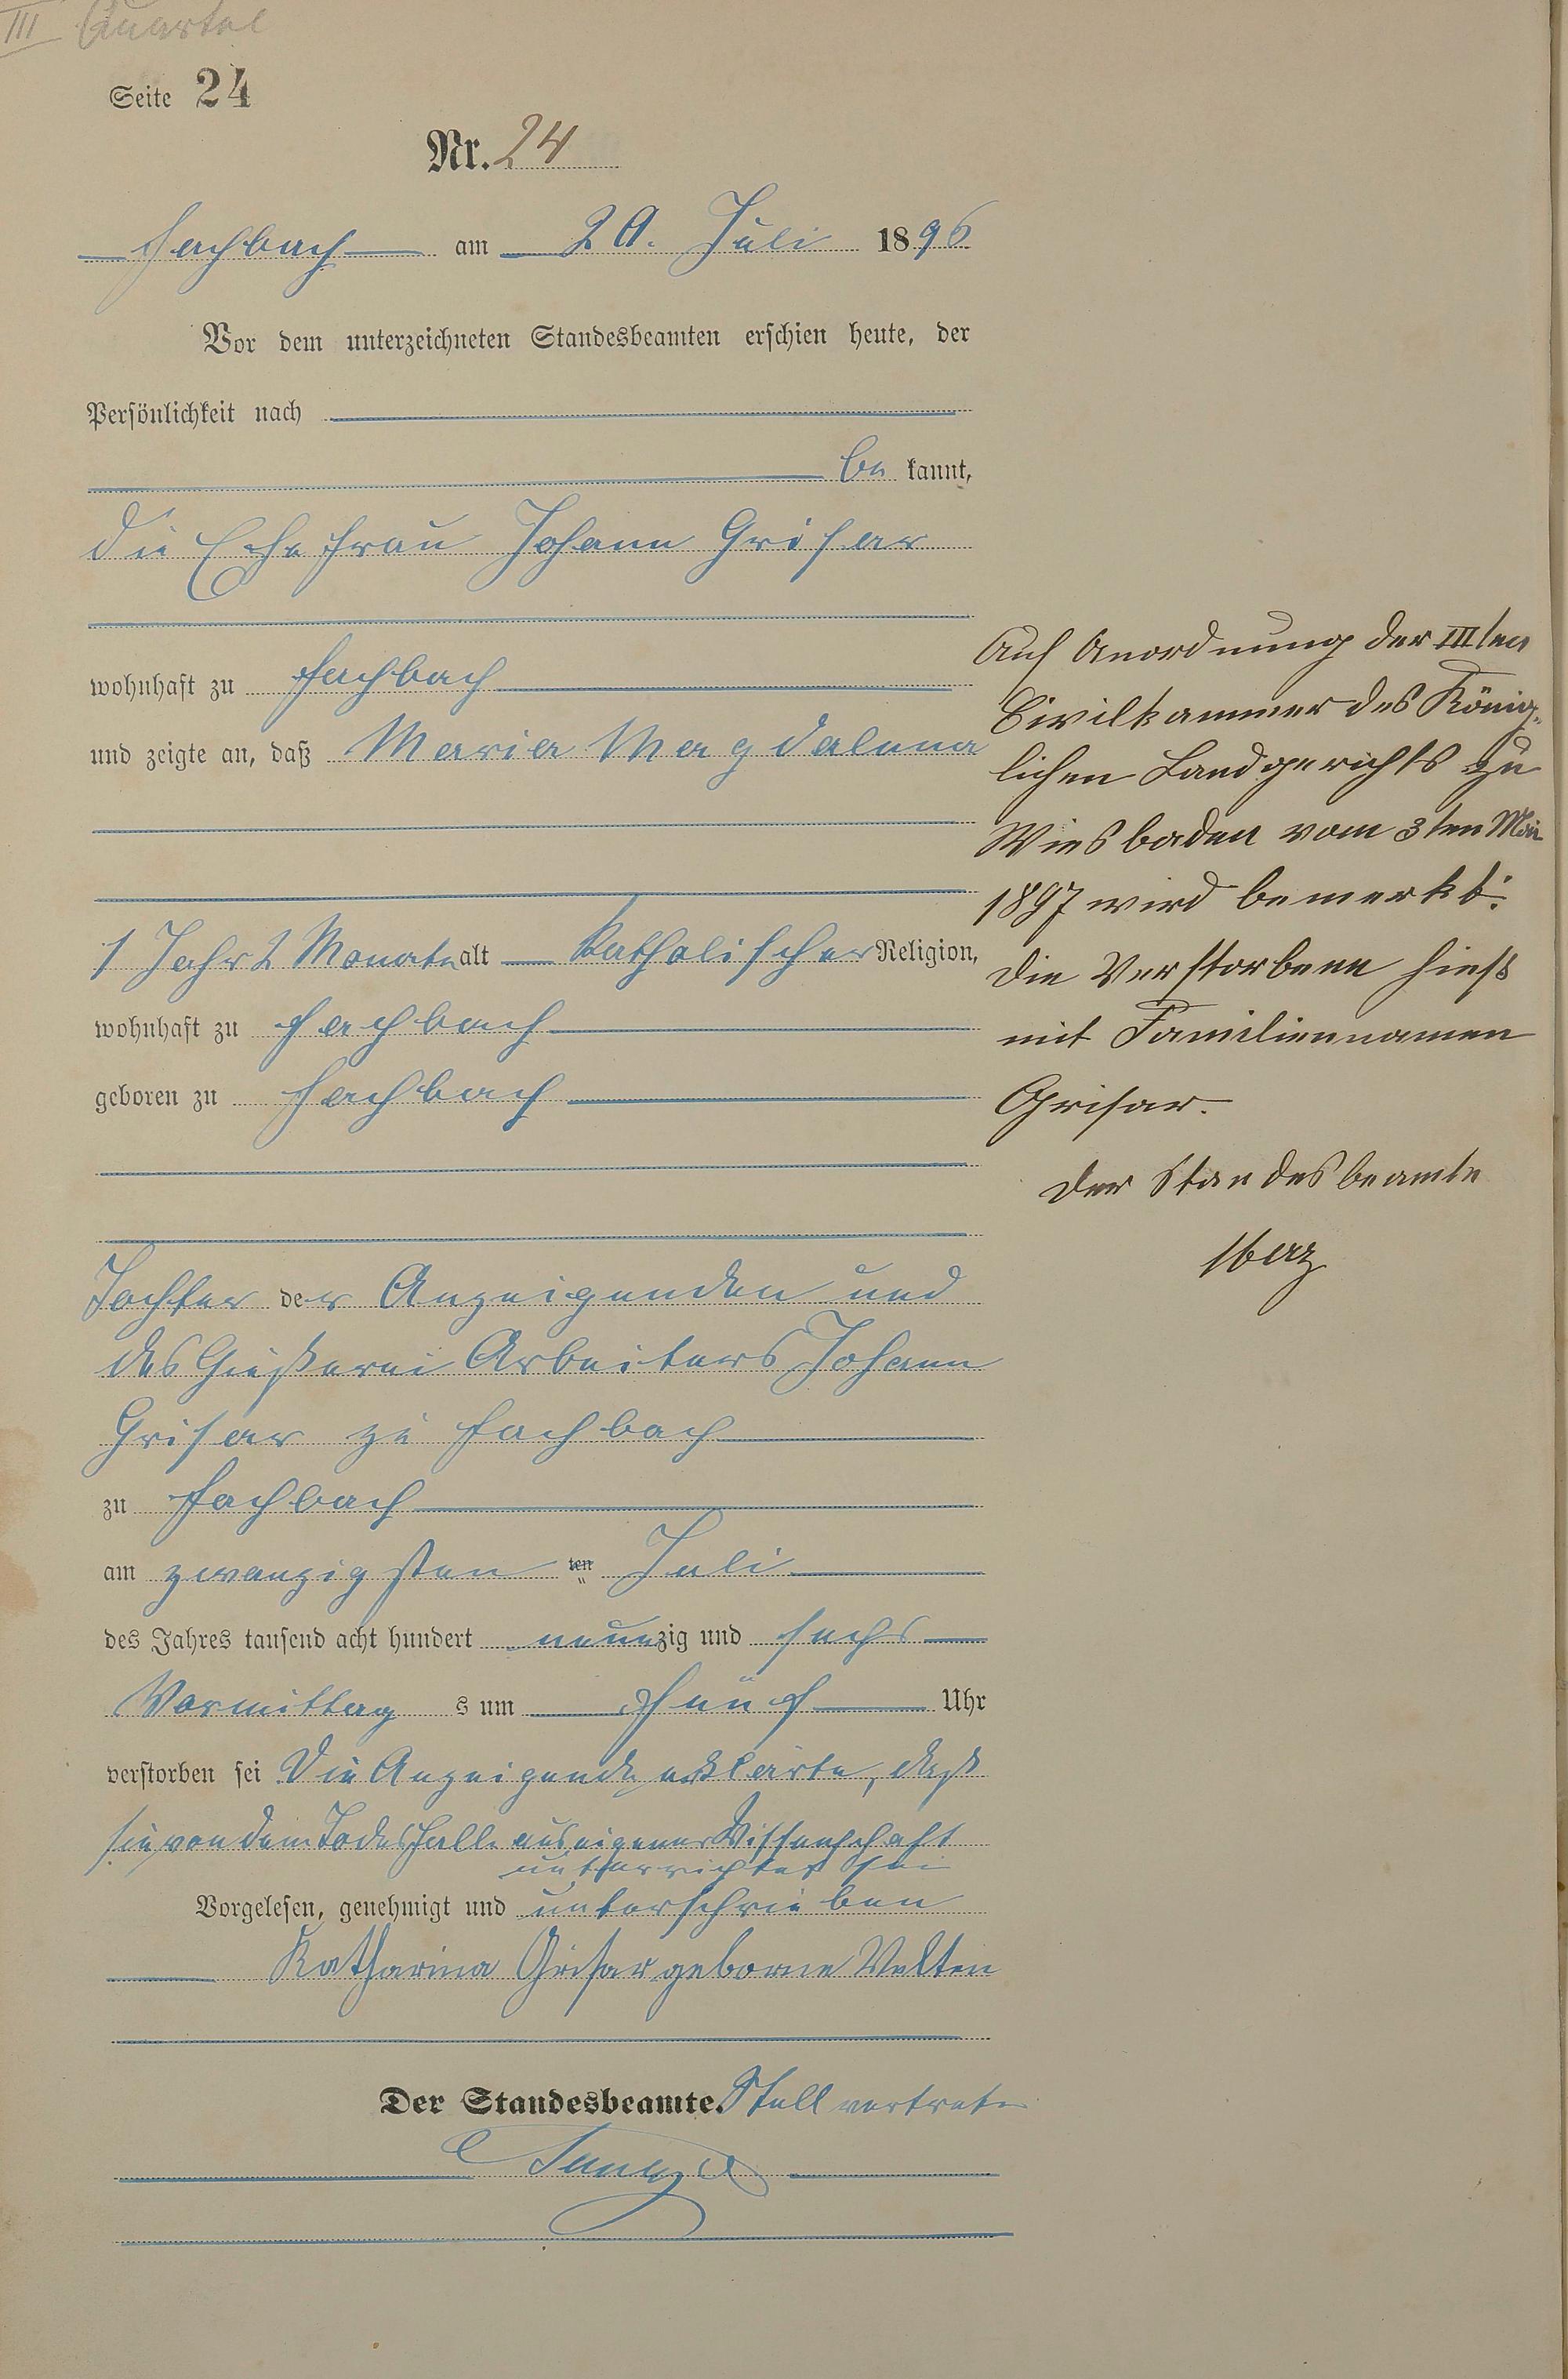 III Quartal
Seite 24
Nr. 24
Fachbach am 20. Juli 1896
Vor dem unterzeichneten Standesbeamten erschien heute, der
Persönlichkeit nach
be kannt,
die Ehefrau Johann Grisar
wohnhaft zu Fachbach
und zeigte an, daß Maria Magdalena
1 Jahr 2 Monate alt katholischer Religion,
wohnhaft zu Fachbach
geboren zu Fachbach
Tochter der Anzeigenden und
des Gießerei Arbeiters Johann
Grisar zu Fachbach
zu Fachbach
am zwanzigsten ten Juli
des Jahres tausend acht hundert neunzig und sechs
Vormittag s um Fünf Uhr
verstorben sei Die Anzeigende erklärte, daß
sie von dem Todesfalle aus eigener Wissenschaft
unterrichtet sei
Vorgelesen, genehmigt und unterschrieben
Katharina Grisar geborne Velten
Der Standesbeamte. Stellvertreter
Auf Anordnung der IIIten
Civilkammer des König-
lichen Landgerichts zu
Wiesbaden vom 3ten Mai
1897 wird bemerkt:
die Verstorbene hieß
mit Familiennamen
Grisar.
Der Standesbeamte